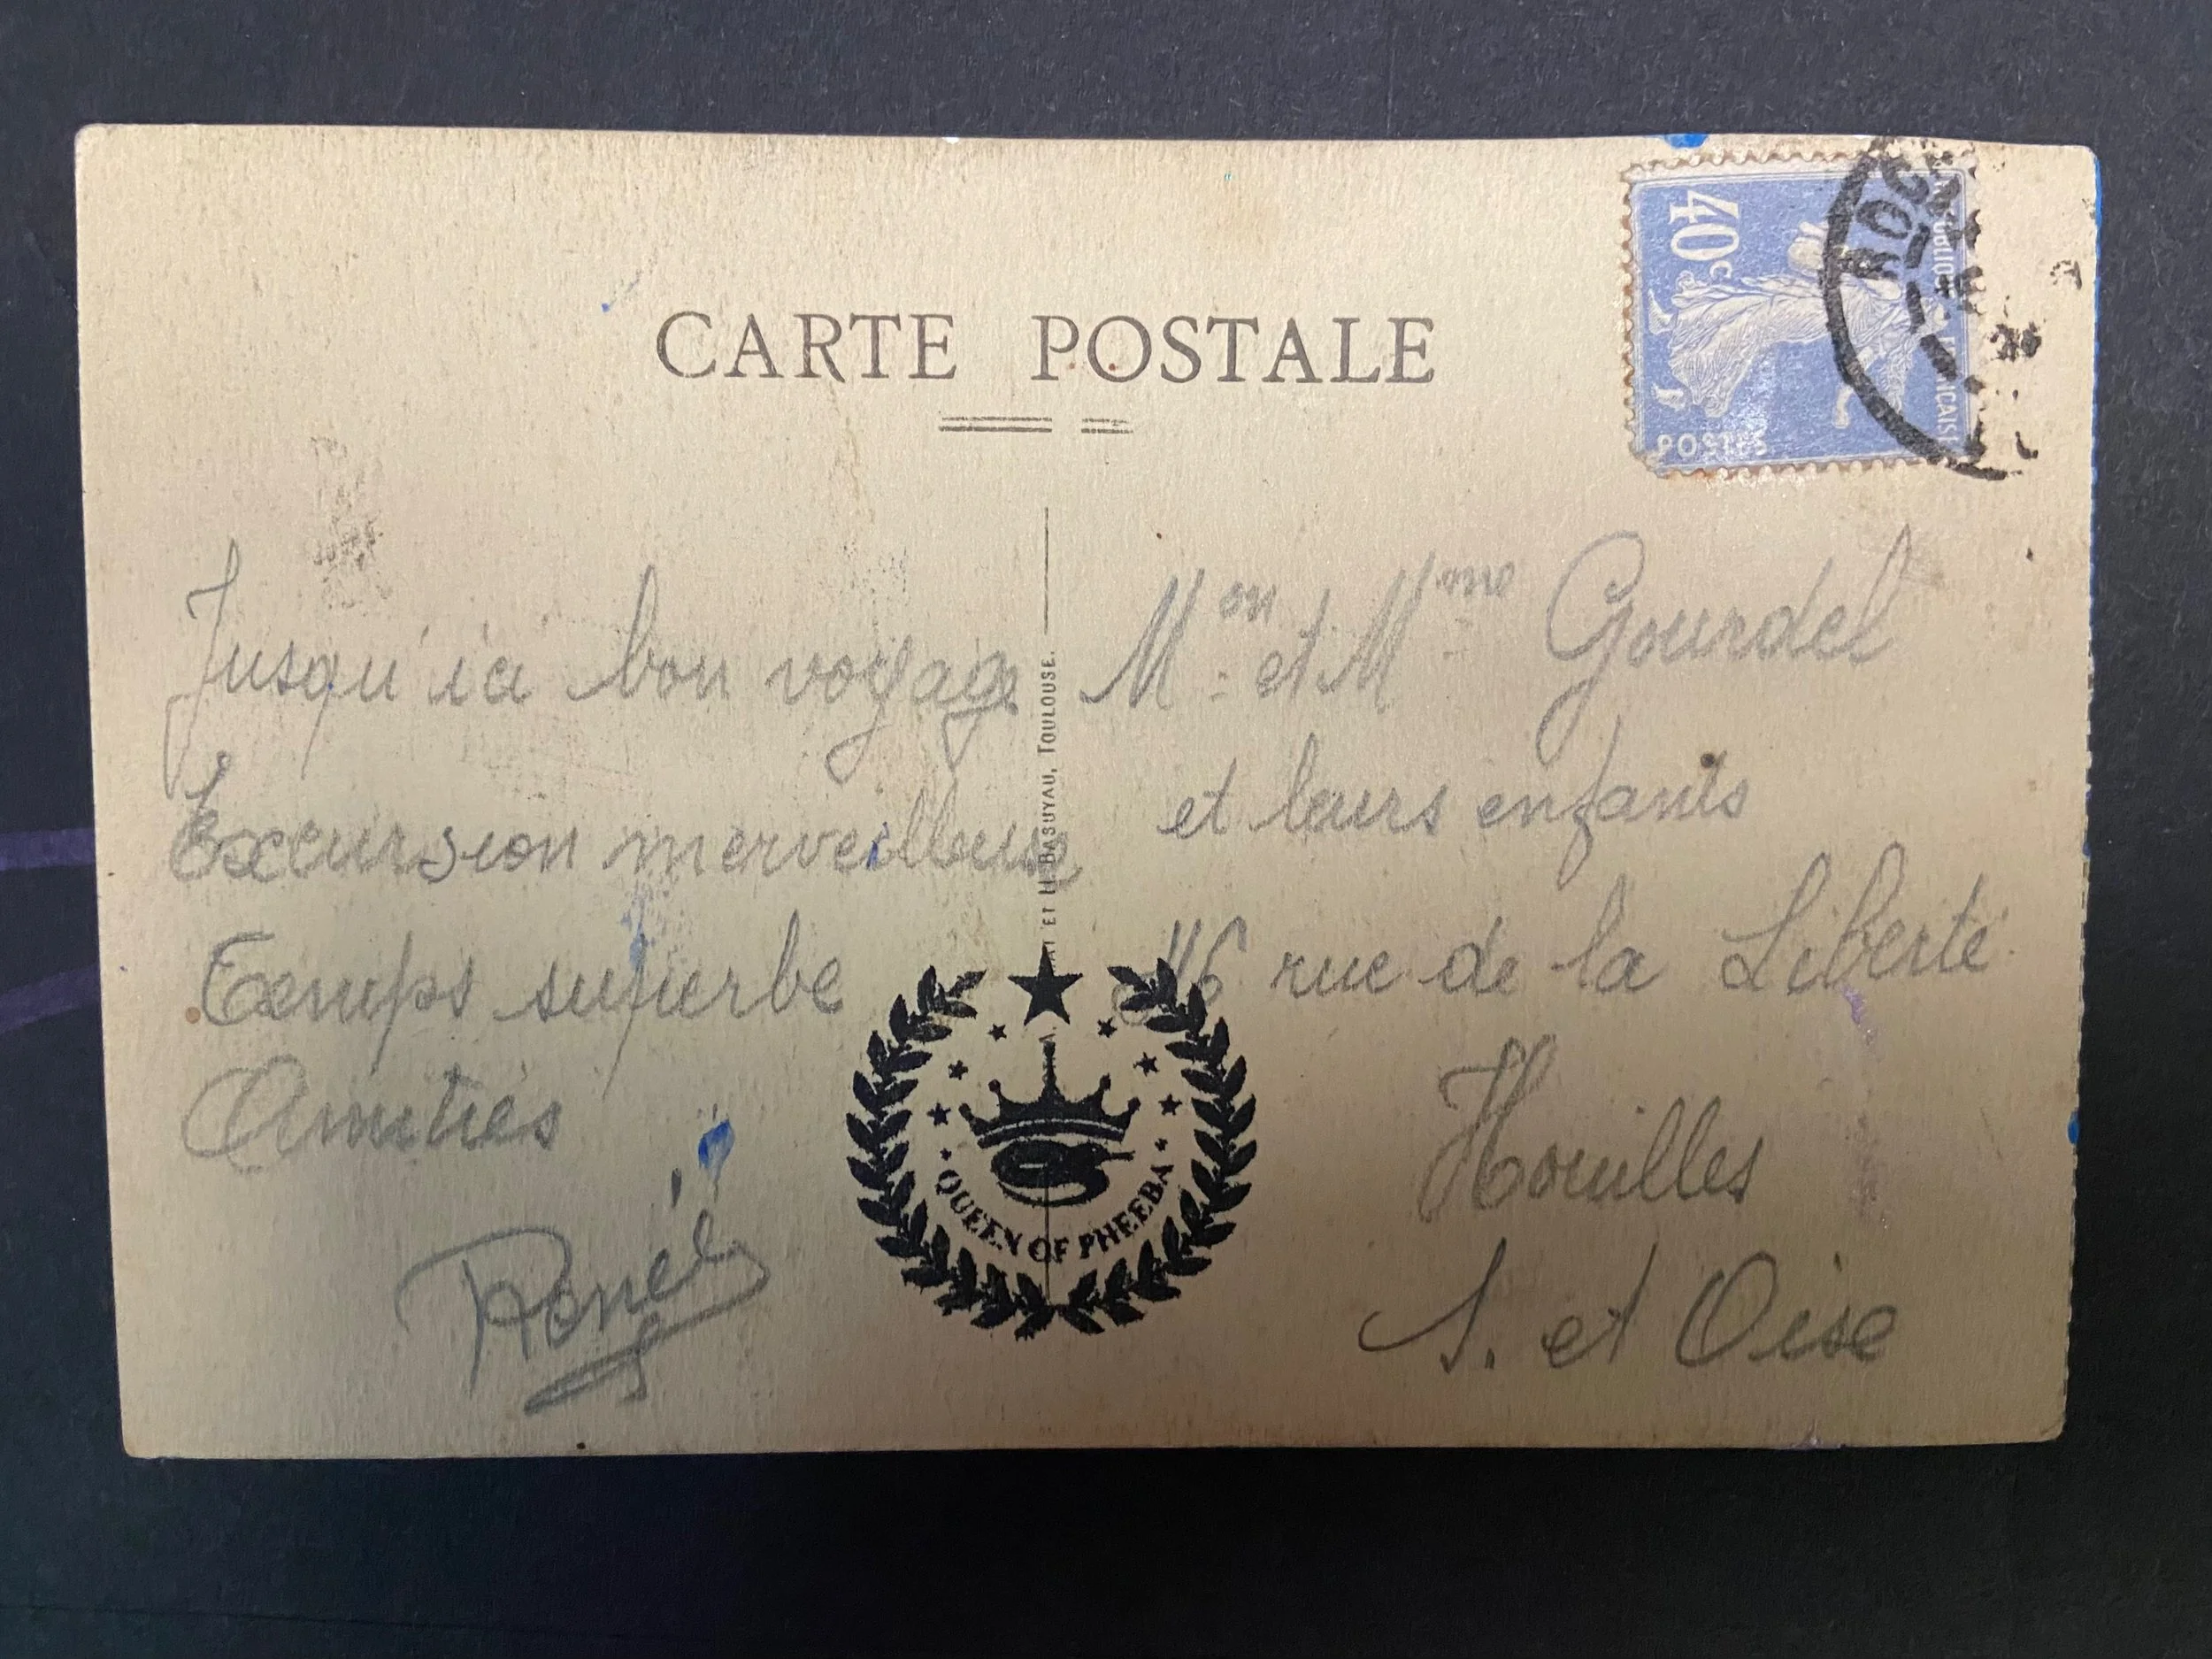 CARTE POSTALE
40c
POSTES
ROC
Jusqu'ici bon voyage
Excursion merveilleuse
Temps superbe
Amitiés
René
ET H. BASUYAU, TOULOUSE.
Mon et Mme Gourdel
et leurs enfants
rue de la Liberté
Houilles
S. et Oise
QUEEN OF PHEEBA